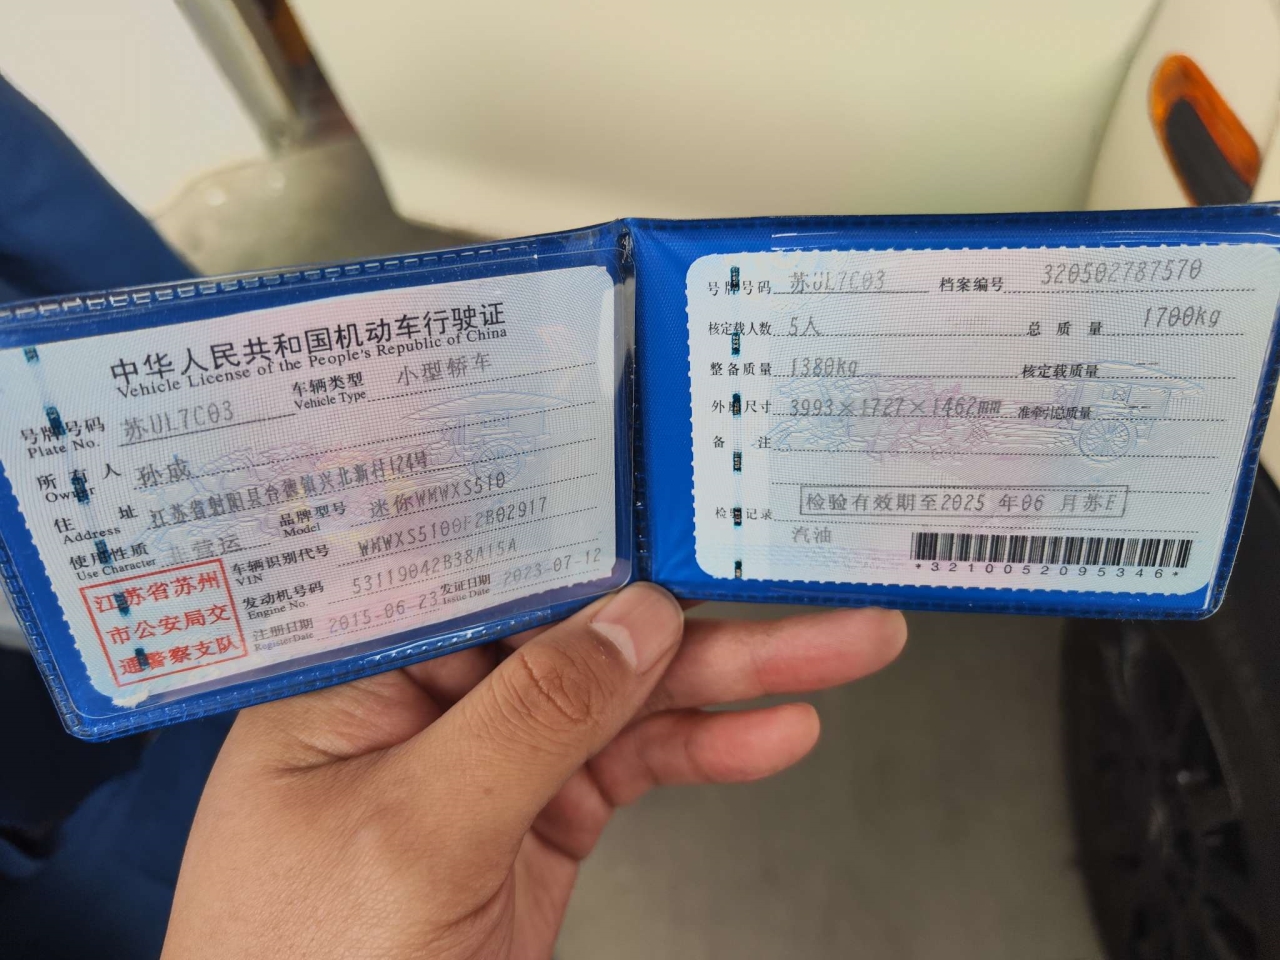 中华人民共和国机动车行驶证
Vehicle License of the People's Republic of China
号牌号码 苏UL7C03 车辆类型 小型轿车
Plate No. Vehicle Type
所有人 孙成
Owner
住址 江苏省射阳县台德镇兴北新村124号
Address
使用性质 非营运 品牌型号 迷你WMWXS510
Use Character Model
车辆识别代号 WMWXS5100F2B02917
VIN
发动机号码 53119042B38A15A
Engine No.
注册日期 2015-06-23 发证日期 2023-07-12
Register Date Issue Date
江苏省苏州
市公安局交
通警察支队
号牌号码 苏UL7C03 档案编号 320502787570
核定载人数 5人 总质量 1700kg
整备质量 1380kg 核定载质量 --
外廓尺寸 3993×1727×1462mm 准牵引总质量 --
备注
检验记录 检验有效期至2025 年06 月苏E
汽油
*3210052095346*